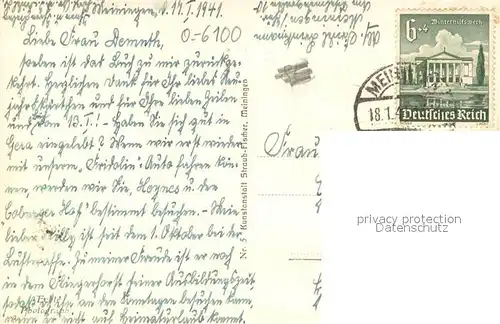 Meiningen, d. 17.I.1941.
0-6100
Liebe Frau Nemeth,
soeben ist das Buch zu mir zurückge-
kehrt. Herzlichen Dank für Ihr liebes Neu-
jahrskärtchen und für Ihre lieben Zeilen
vom 13.I.! Haben Sie sich gut in
Gera eingelebt? Wenn wir erst wieder
mit unserm "Fridolin" Auto fahren kön-
nen, werden wir Sie, Heynes u. den
"Coburger Hof" bestimmt besuchen. Mein
lieber Willy ist seit dem 1. Oktober bei der
Luftwaffe. Zu meiner Freude ist er noch
in dem Fliegerhorst seiner Ausbildungszeit,
an den Sonntagen besuchen kann,
wenn er nicht auf Heimaturlaub kommt.
Nr. 5 Kunstanstalt Straub-Fischer, Meiningen
Frau
6+4
Winterhilfswerk
Deutsches Reich
MEI
18.1.
privacy protection
Datenschutz
Photograph